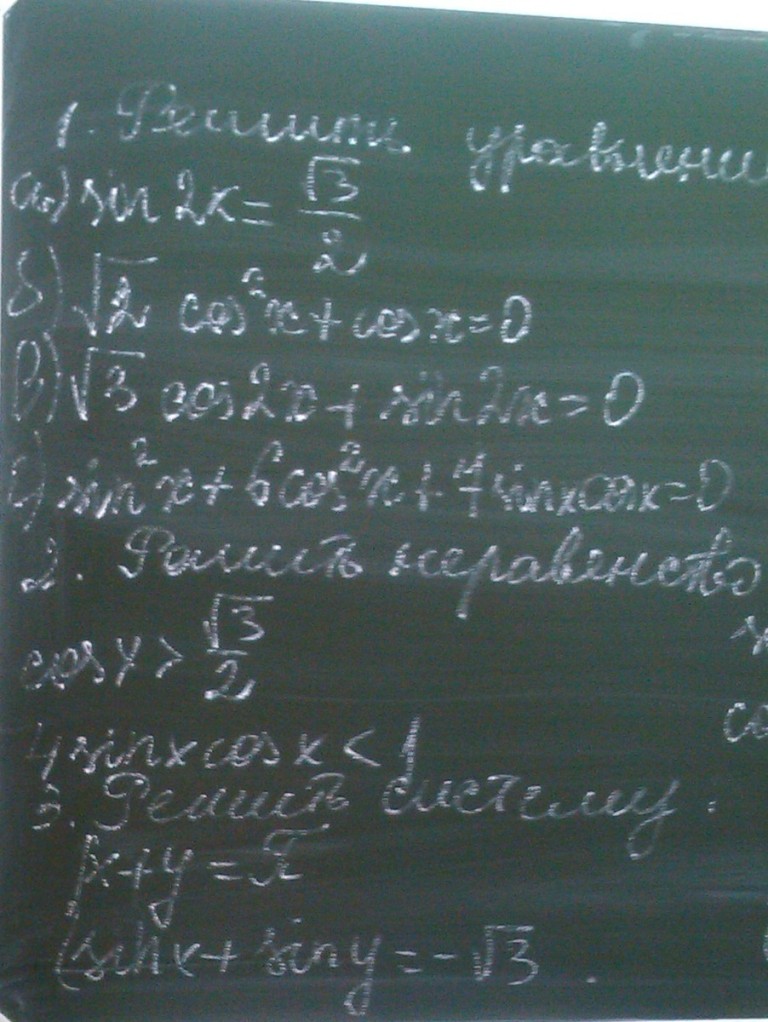 1. Решить уравнени
а) sin 2x = √3/2
б) √2 cos²x + cos x = 0
в) √3 cos 2x + sin 2x = 0
г) sin²x + 6cos²x + 7sinxcosx = 0
2. Решить неравенство
cos x > √3/2
4sinxcosx < 1
co
3. Решить систему.
{x + y = π
{sin x + sin y = -√3